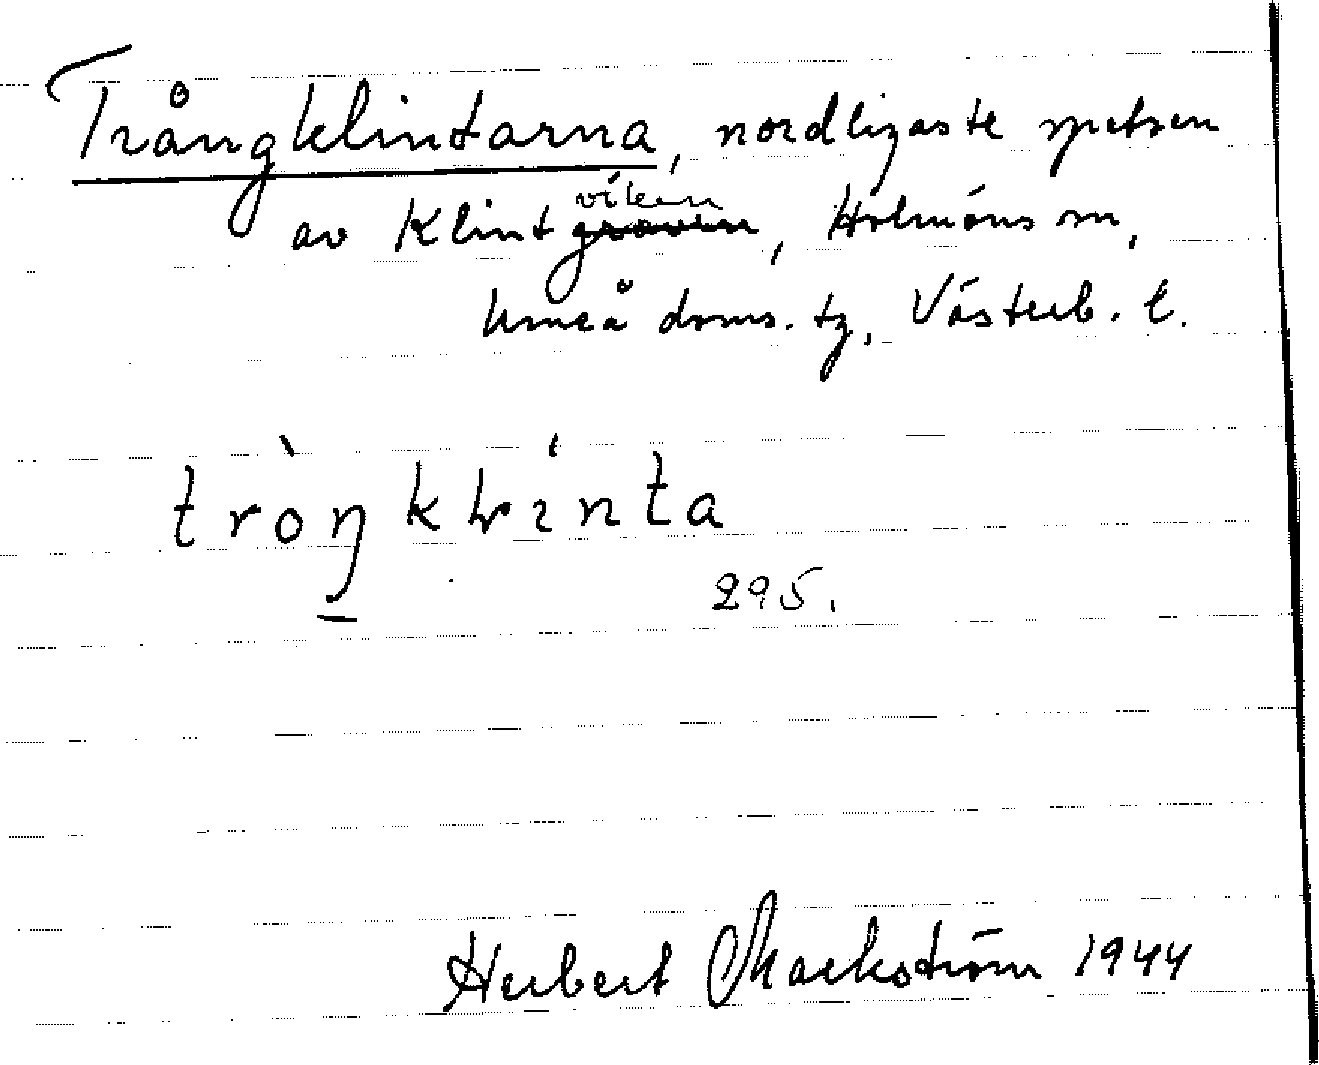 Trångklintarna, nordligaste spetsen
av Klintviken, Holmöns sn,
Umeå doms. tg, Västerb. l.
tròŋklínta
295.
Herbert Markström 1944